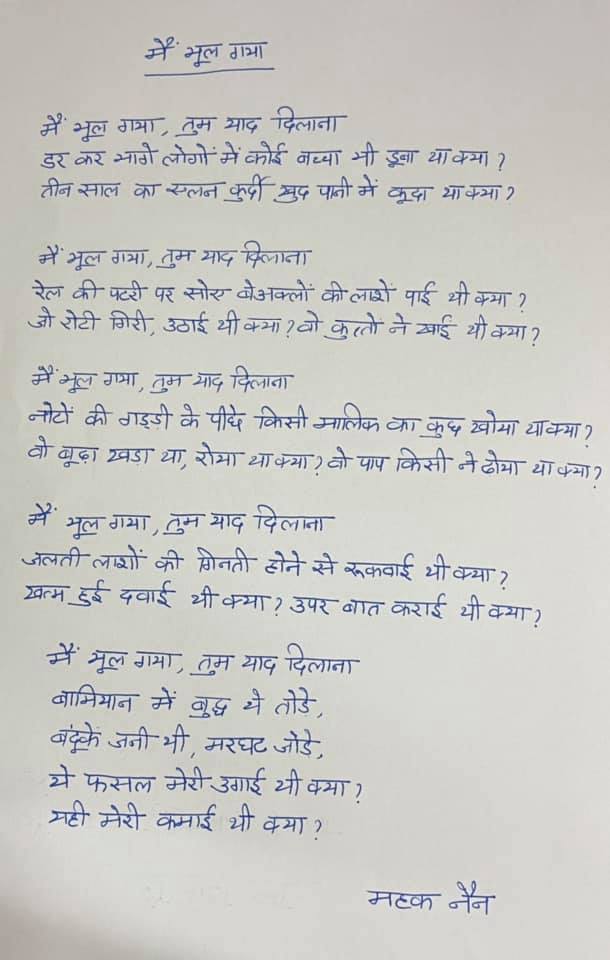 मैं भूल गया
मैं भूल गया, तुम याद दिलाना
डर कर भागे लोगों में कोई बच्चा भी डूबा था क्या?
तीन साल का एलन कुर्दी खुद पानी में कूदा था क्या?
मैं भूल गया, तुम याद दिलाना
रेल की पटरी पर सोए बेअक्लों की लाशें पाई थी क्या?
जो रोटी गिरी, उठाई थी क्या? वो कुत्तों ने खाई थी क्या?
मैं भूल गया, तुम याद दिलाना
नोटों की गड्डी के पीछे किसी मालिक का कुछ खोया था क्या?
वो बूढ़ा खड़ा था, रोया था क्या? वो पाप किसी ने ढोया था क्या?
मैं भूल गया, तुम याद दिलाना
जलती लाशों की गिनती होने से रूकवाई थी क्या?
खत्म हुई दवाई थी क्या? उपर बात कराई थी क्या?
मैं भूल गया, तुम याद दिलाना
बामियान में बुद्ध थे तोडे,
बंदूकें जनी थी, मरघट जोडे,
ये फसल मेरी उगाई थी क्या?
यही मेरी कमाई थी क्या?
महक नैन